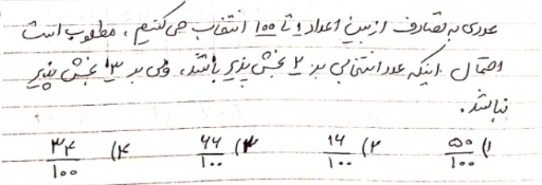 عددی به تصادف از بین اعداد ۱ تا ۱۰۰ انتخاب می کنیم، مطلوب است
احتمال اینکه عدد انتخابی بر ۲ بخش پذیر باشد، ولی بر ۳ بخش پذیر
نباشد.
۱) ۵۰/۱۰۰ ۲) ۱۶/۱۰۰ ۳) ۶۶/۱۰۰ ۴) ۳۴/۱۰۰